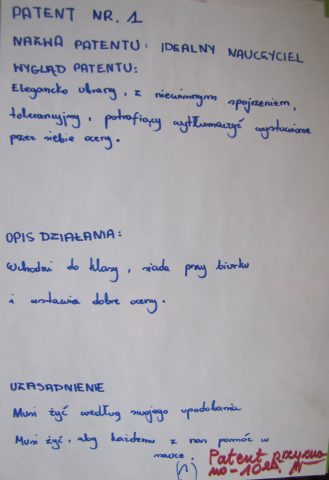 PATENT NR. 1
NAZWA PATENTU: IDEALNY NAUCZYCIEL
WYGLĄD PATENTU:
Elegancko ubrany, z niewinnym spojrzeniem,
tolerancyjny, potrafiący wytłumaczyć wystawione
przez siebie oceny.
OPIS DZIAŁANIA:
Wchodzi do klasy, siada przy biurku
i wstawia dobre oceny.
UZASADNIENIE
Musi żyć według swojego upodobania
Musi żyć, aby każdemu z nas pomóc w
nauce.
Patent
no-10